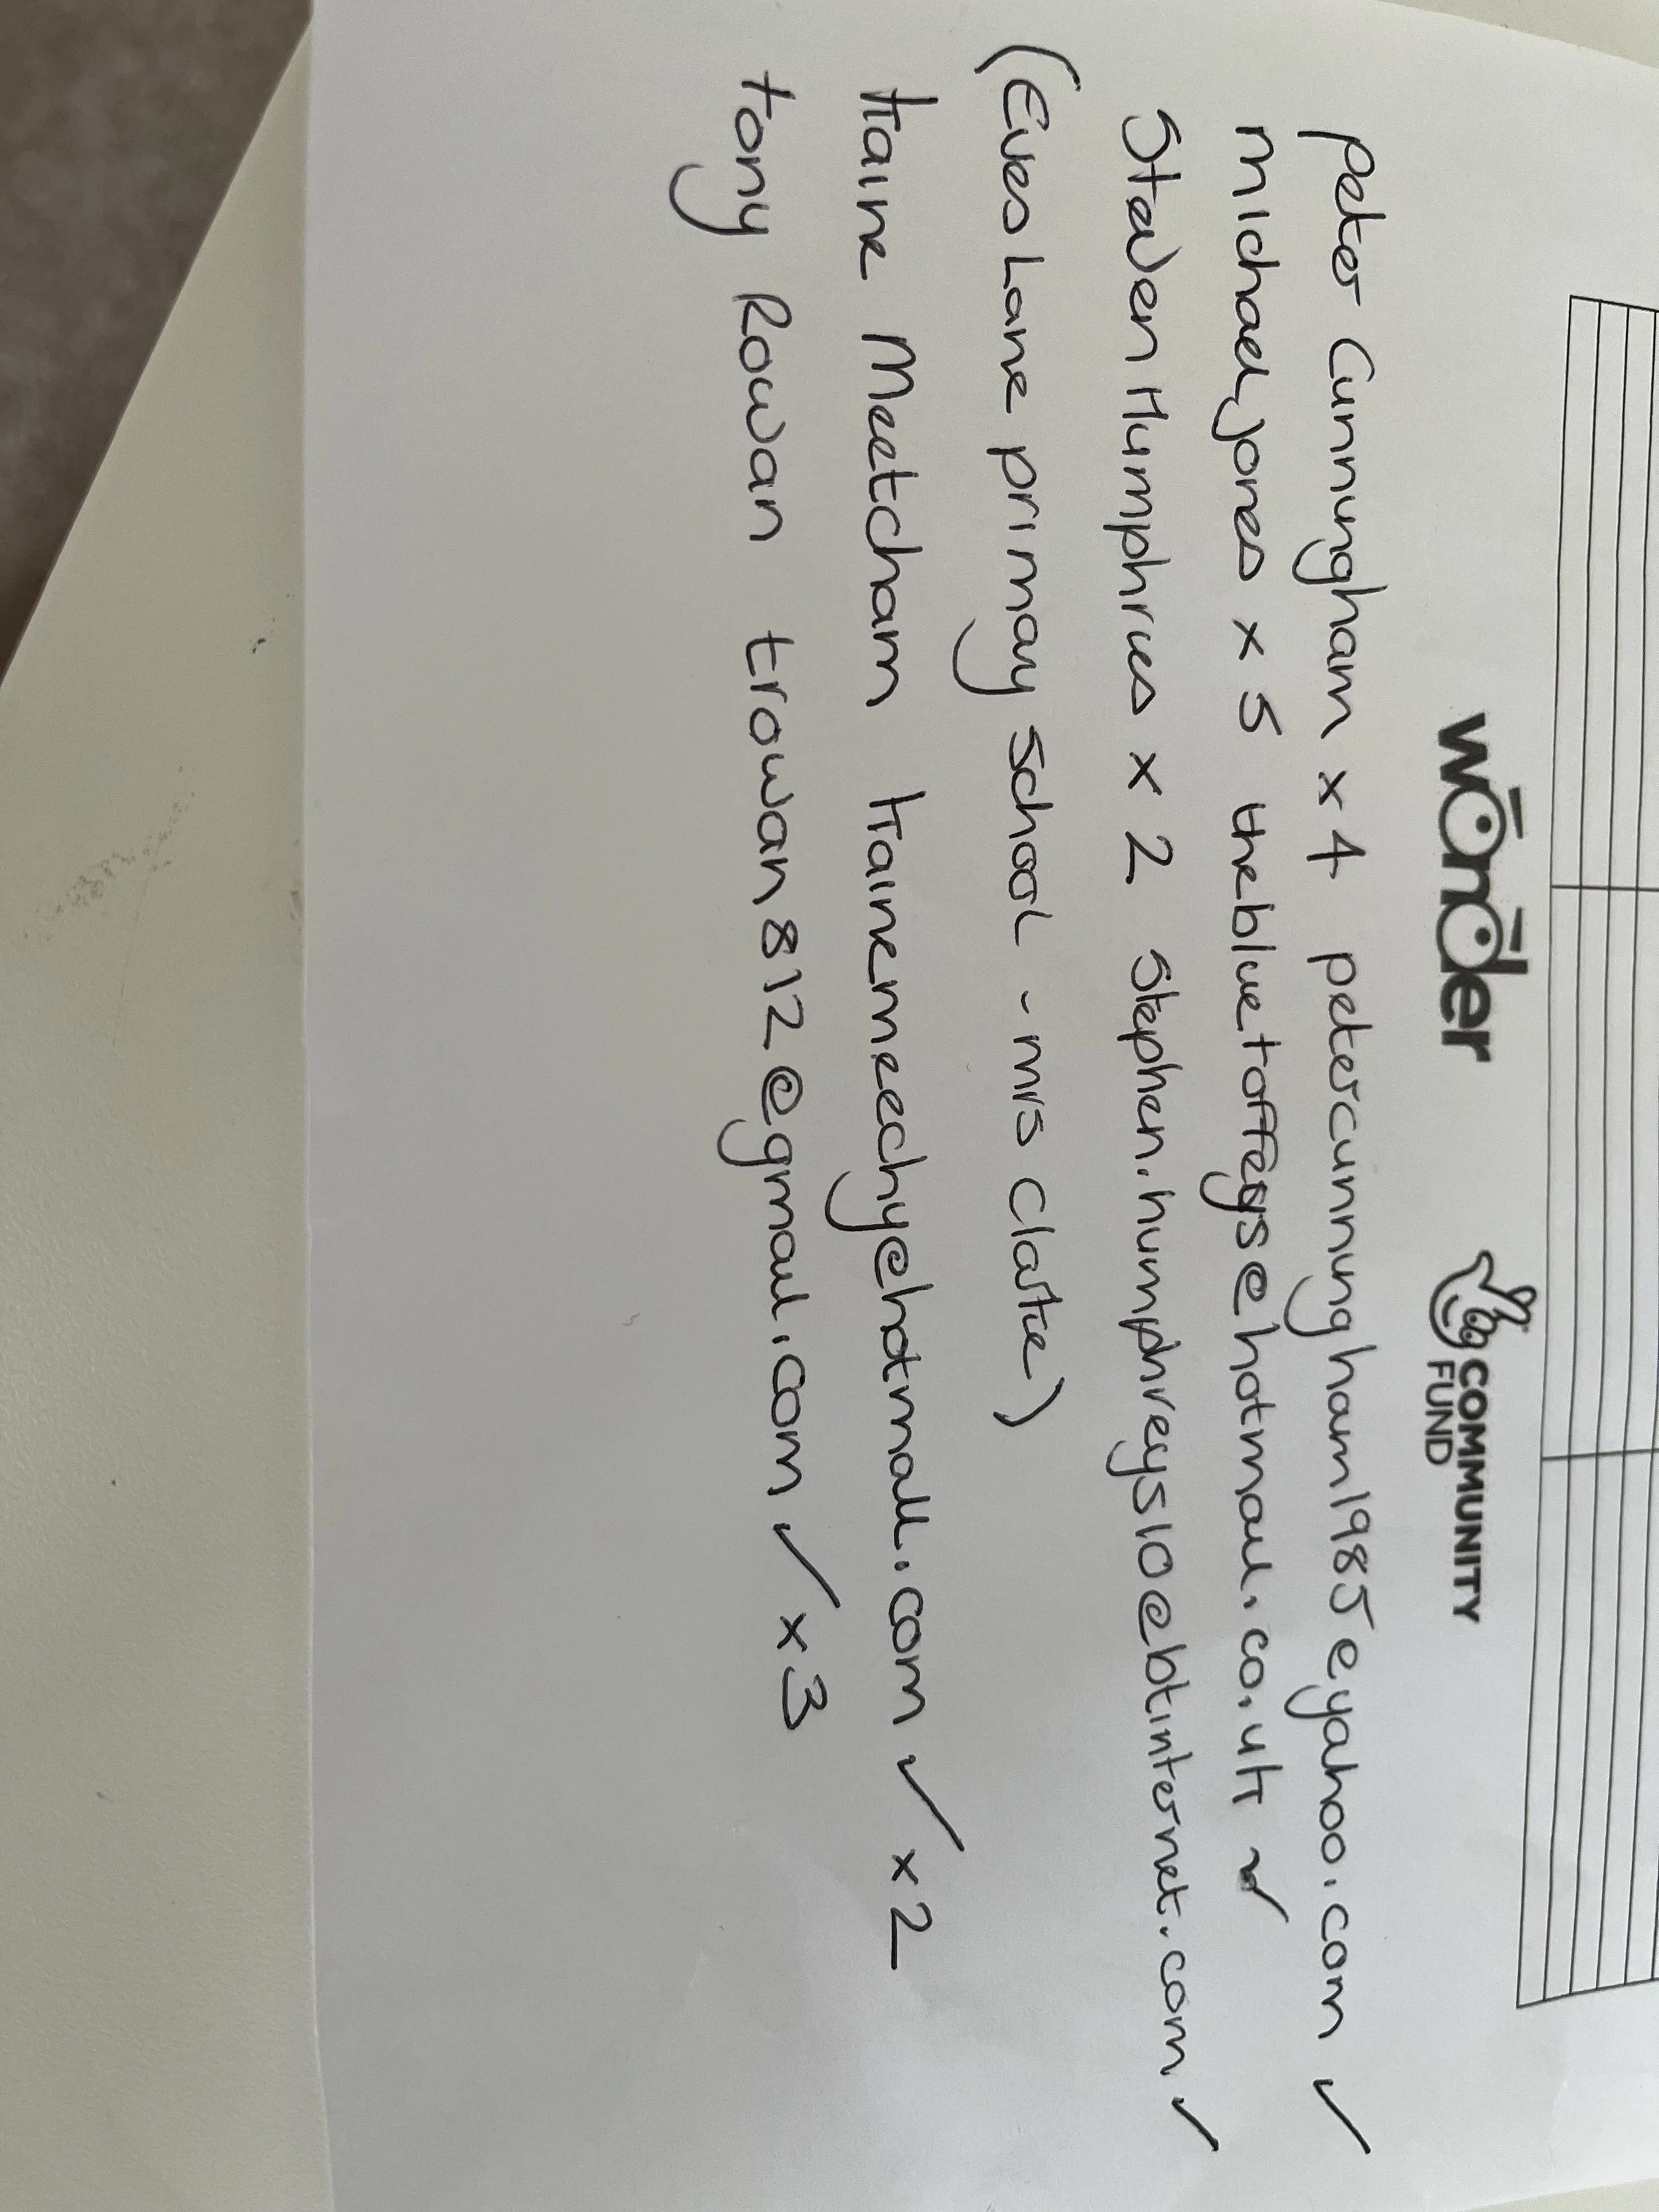 wonder COMMUNITY FUND
Peter Cunningham x 4 petercunningham1985@yahoo.com ✓
Michael Jones x 5 thebluetoffeys@hotmail.co.uk ✓
Steven Humphries x 2 stephen.humphreys10@btinternet.com ✓
(Eves Lane primay school - mrs clarke)
Kaine Meetcham kainemeechy@hotmail.com ✓ x2
tony Rowan trowan812@gmail.com ✓ x3